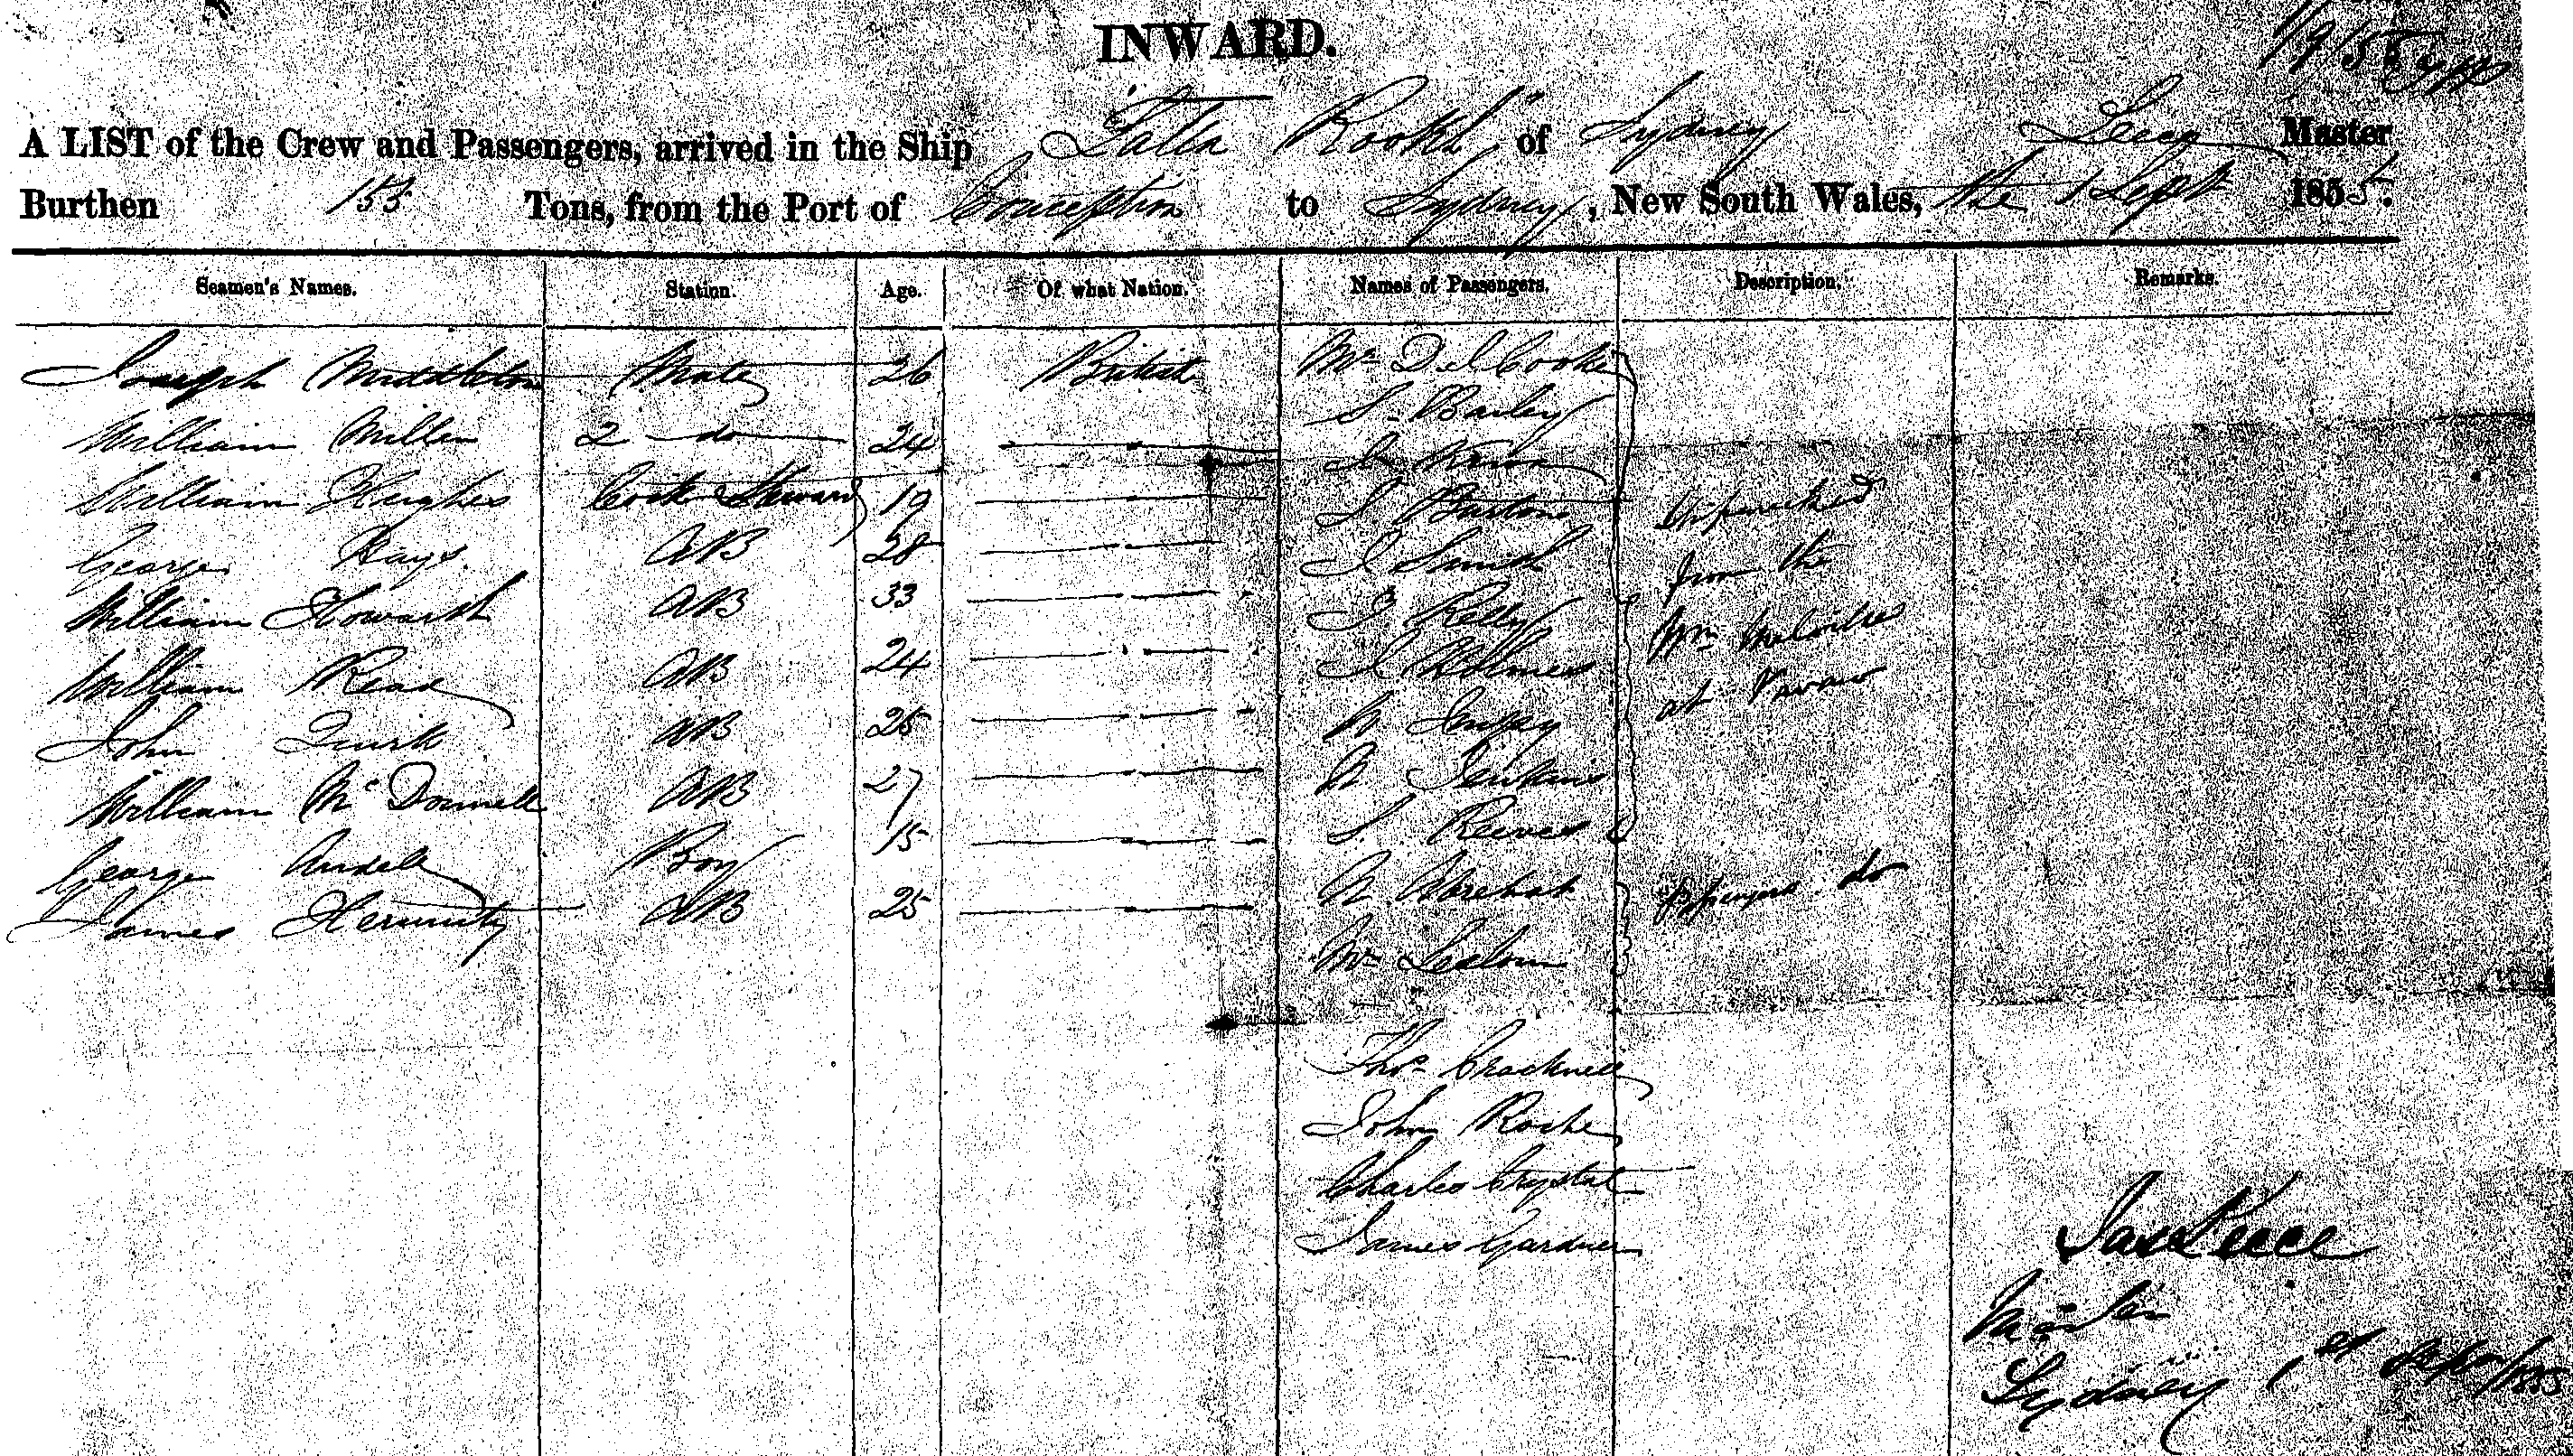 INWARD.
1/9/55
A LIST of the Crew and Passengers, arrived in the Ship "Lalla Rookh" of Sydney Leece Master
Burthen 153 Tons, from the Port of Conception to Sydney, New South Wales, the 1 Sept 1855.
Seamen's Names. Station. Age. Of what Nation. Names of Passengers. Description. Remarks.
Joseph Middleton Mate 26 British Mr D. J Cooke
William Miller 2 do 24 S. Bailey
William Hughes Cook & Steward 19 J. Burton Shipwrecked
George Hays AB 28 J Smith from the
William Howarth AB 33 J Kelly Wm
William Read AB 24 J Holmes at Vavaw
John Quirk AB 25
William McDonnell AB 27 Jenkins
George Boy 15 S. Reeves
James AB 25 passengers do
Mr
Thos Cracknell
John Roche
Charles Crystal
James Gardner
Jas Leece
Master
Sydney 1st Sept/1855